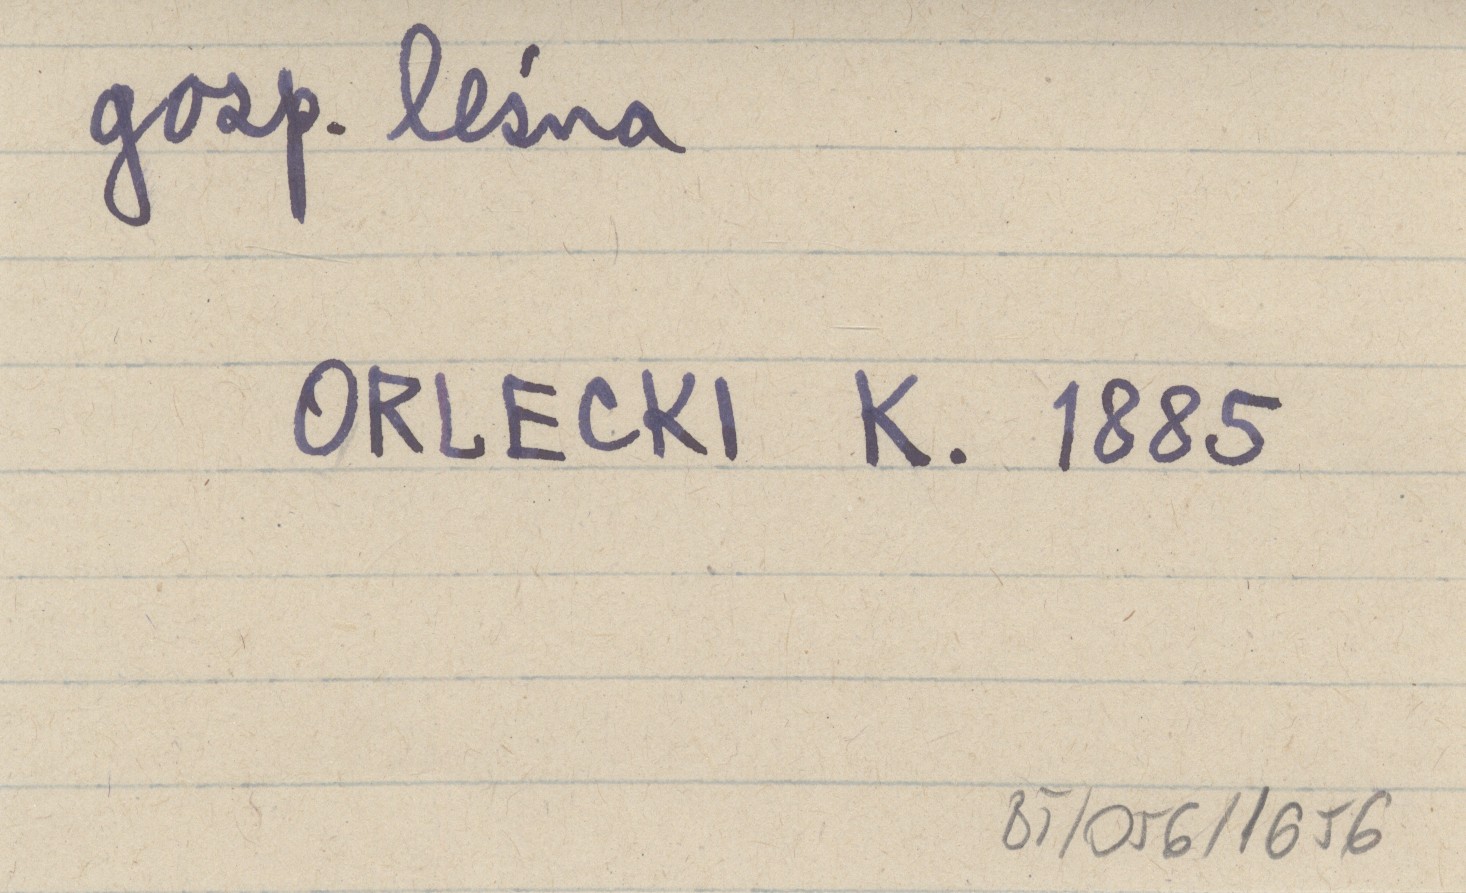 gosp. leśna
ORLECKI K. 1885
BI/056/1656